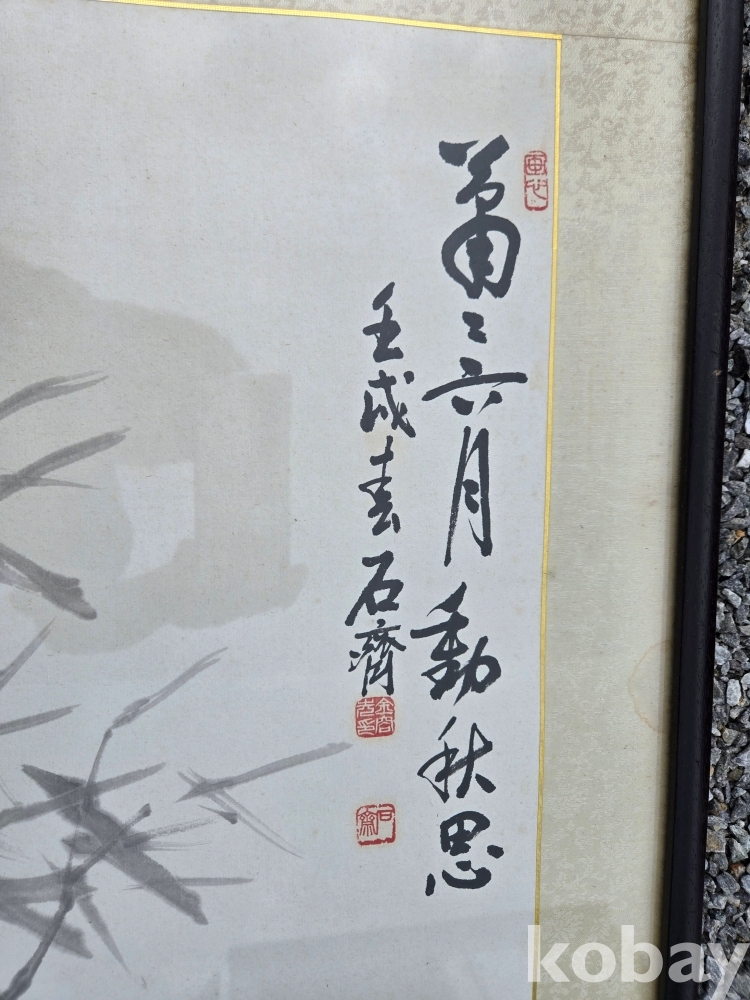 蕭〻六月動秋思
壬戌春石濟
kobay